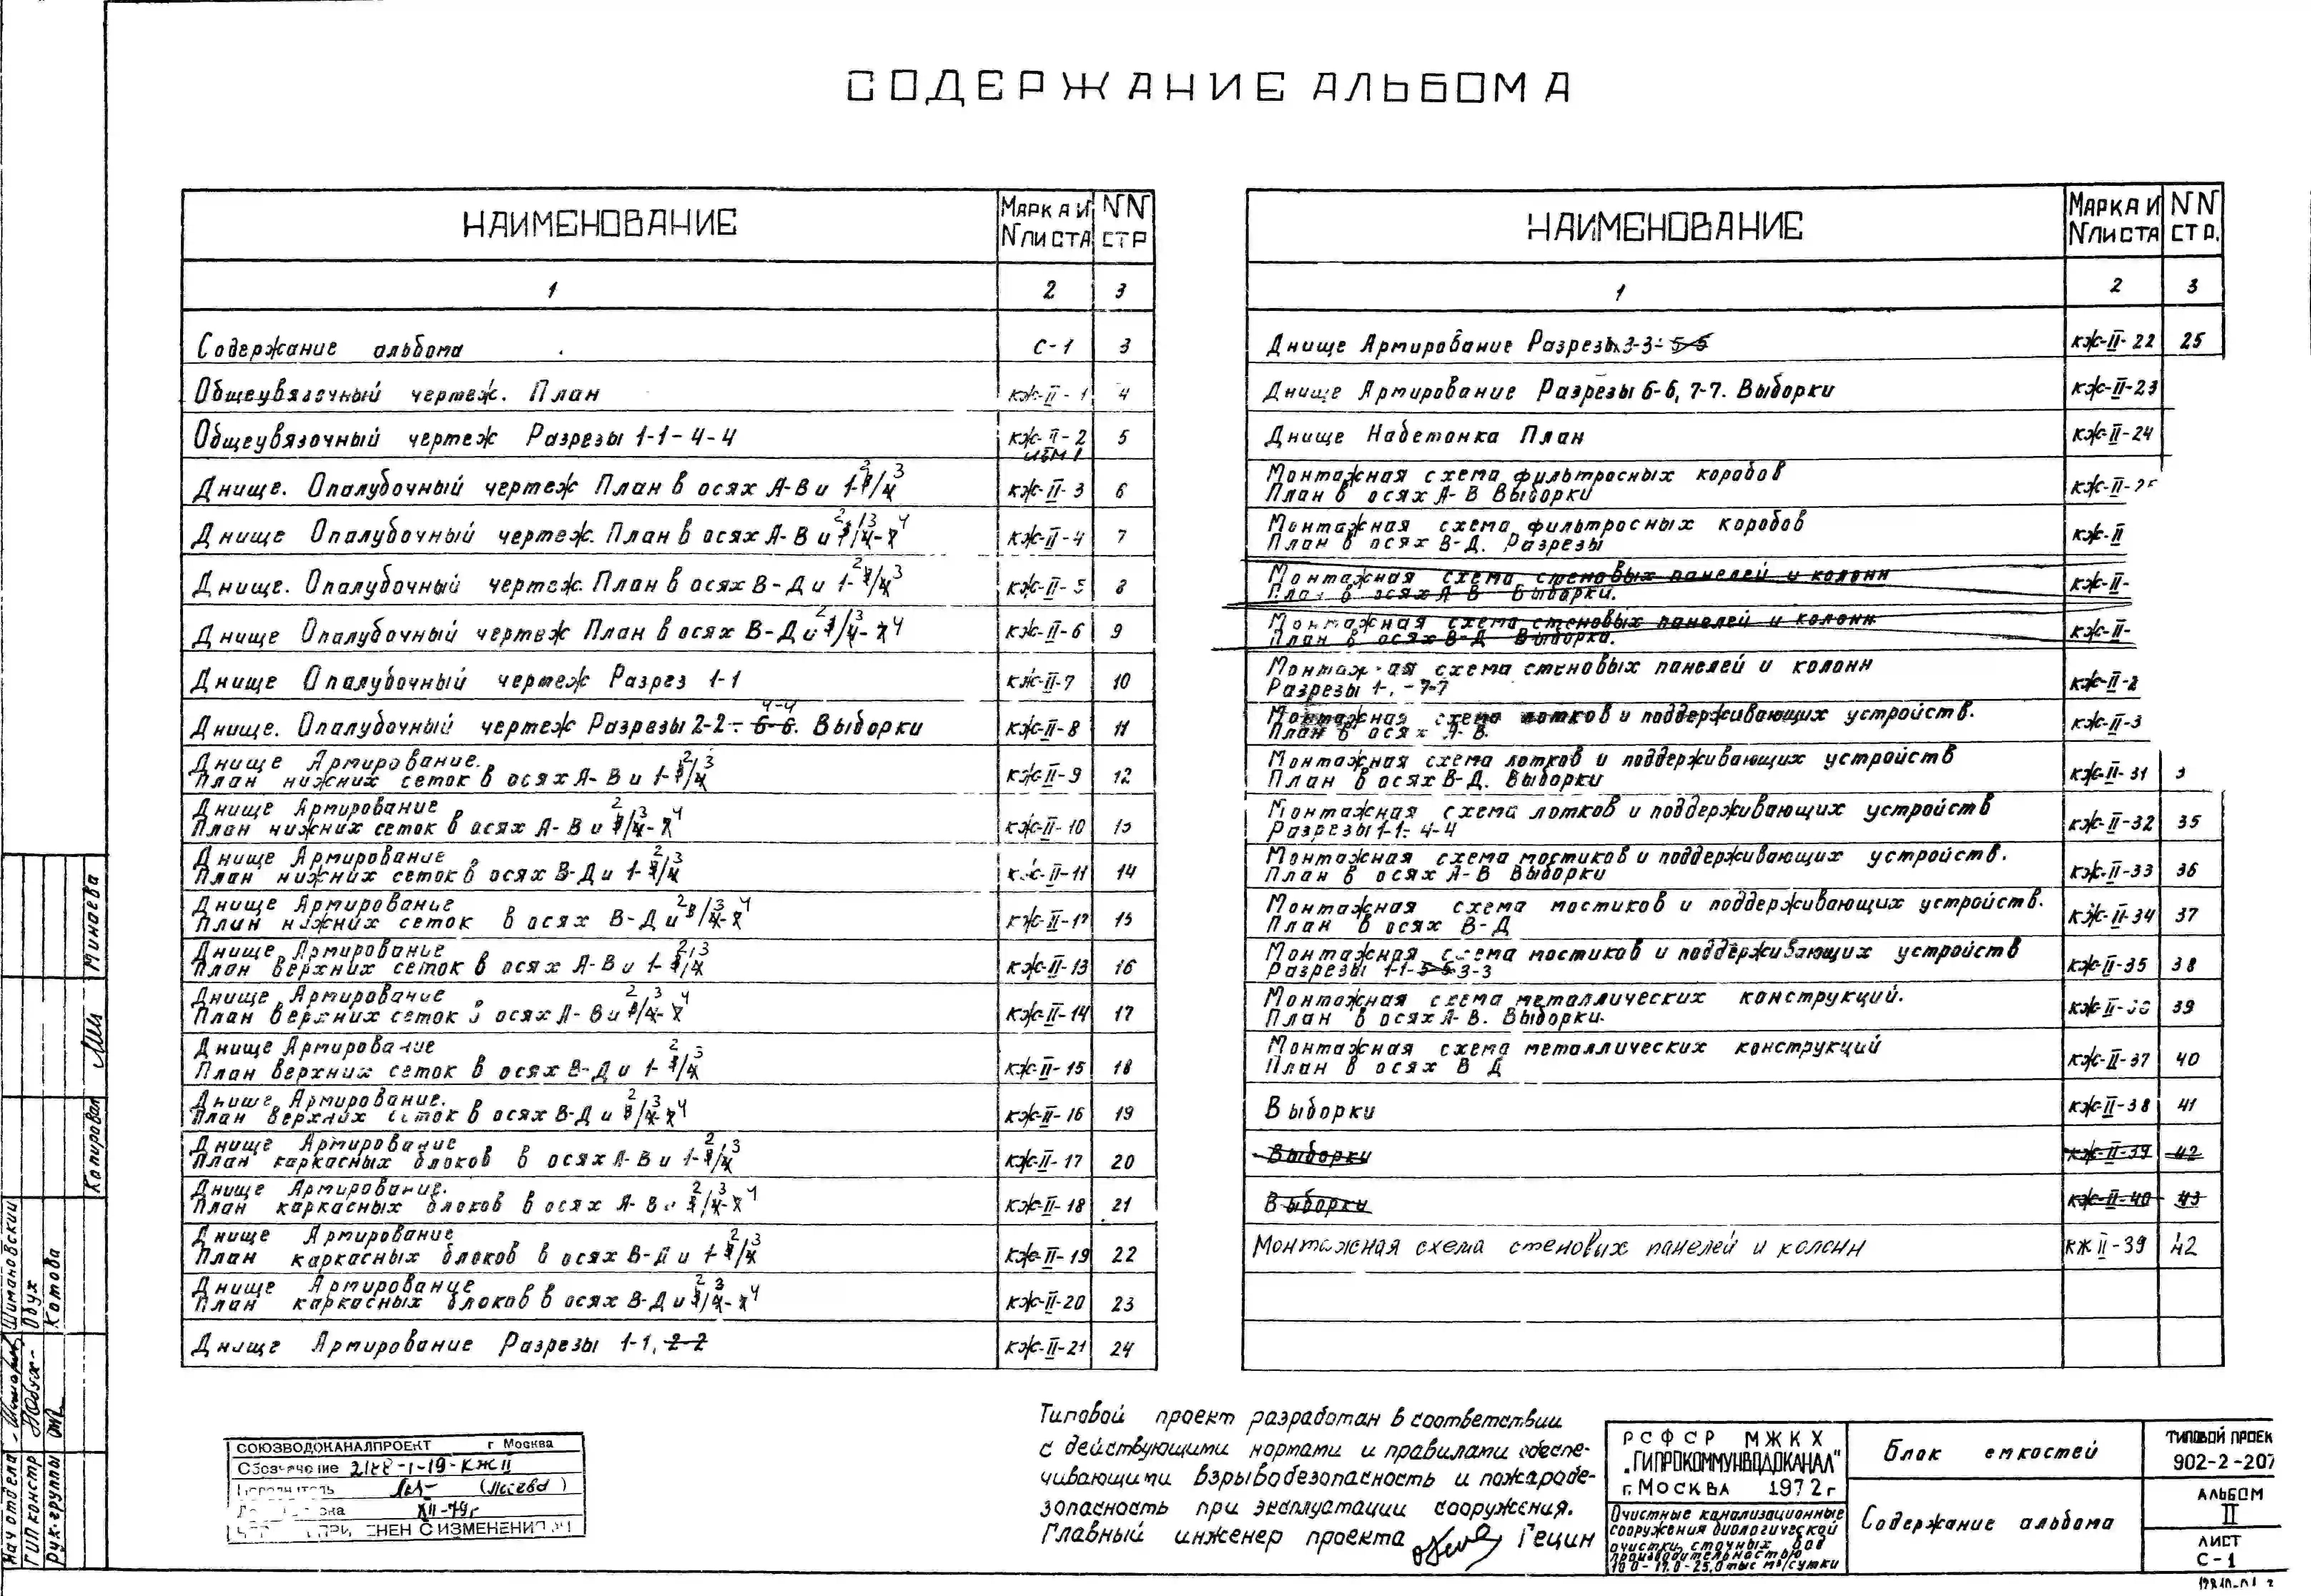 СОДЕРЖАНИЕ АЛЬБОМА
НАИМЕНОВАНИЕ
МАРКА И
N ЛИСТА
NN
СТР
1 2 3
Содержание альбома С-1 3
Общеувязочный чертеж. План КЖ-II-1 4
Общеувязочный чертеж Разрезы 1-1-4-4 КЖ-II-2 5
Днище. Опалубочный чертеж План в осях А-В и 1-2/3 КЖ-II-3 6
Днище Опалубочный чертеж. План в осях А-В и 2/3-4 КЖ-II-4 7
Днище. Опалубочный чертеж. План в осях В-Д и 1-2/3 КЖ-II-5 8
Днище Опалубочный чертеж План в осях В-Д и 2/3-4 КЖ-II-6 9
Днище Опалубочный чертеж Разрез 1-1 КЖ-II-7 10
Днище. Опалубочный чертеж Разрезы 2-2÷6-6 4-4. Выборки КЖ-II-8 11
Днище Армирование.
План нижних сеток в осях А-В и 1-2/3 КЖ-II-9 12
Днище Армирование
План нижних сеток в осях А-В и 2/3-4 КЖ-II-10 13
Днище Армирование
План нижних сеток в осях В-Д и 1-2/3 КЖ-II-11 14
Днище Армирование
План нижних сеток в осях В-Д и 2/3-4 КЖ-II-12 15
Днище Армирование
План верхних сеток в осях А-В и 1-2/3 КЖ-II-13 16
Днище Армирование
План верхних сеток в осях А-В и 2/3-4 КЖ-II-14 17
Днище Армирование
План верхних сеток в осях В-Д и 1-2/3 КЖ-II-15 18
Днище Армирование.
План верхних сеток в осях В-Д и 2/3-4 КЖ-II-16 19
Днище Армирование
План каркасных блоков в осях А-В и 1-2/3 КЖ-II-17 20
Днище Армирование.
План каркасных блоков в осях А-В и 2/3-4 КЖ-II-18 21
Днище Армирование
План каркасных блоков в осях В-Д и 1-2/3 КЖ-II-19 22
Днище Армирование
План каркасных блоков в осях В-Д и 2/3-4 КЖ-II-20 23
Днище Армирование Разрезы 1-1, 2-2 КЖ-II-21 24
НАИМЕНОВАНИЕ
МАРКА И
N ЛИСТА
NN
СТР.
1 2 3
Днище Армирование Разрезы 3-3÷5-5 КЖ-II-22 25
Днище Армирование Разрезы 6-6, 7-7. Выборки КЖ-II-23
Днище Набетонка План КЖ-II-24
Монтажная схема фильтросных коробов
План в осях А-В Выборки КЖ-II-2
Монтажная схема фильтросных коробов
План в осях В-Д. Разрезы КЖ-II
Монтажная схема стеновых панелей и колонн
План в осях А-В Выборки. КЖ-II-
Монтажная схема стеновых панелей и колонн
План в осях В-Д Выборка. КЖ-II-
Монтажная схема стеновых панелей и колонн
Разрезы 1-1÷7-7 КЖ-II-2
Монтажная схема лотков и поддерживающих устройств.
План в осях А-В. КЖ-II-3
Монтажная схема лотков и поддерживающих устройств
План в осях В-Д. Выборки КЖ-II-31 3
Монтажная схема лотков и поддерживающих устройств
Разрезы 1-1÷4-4 КЖ-II-32 35
Монтажная схема мостиков и поддерживающих устройств.
План в осях А-В Выборки КЖ-II-33 36
Монтажная схема мостиков и поддерживающих устройств.
План в осях В-Д КЖ-II-34 37
Монтажная схема мостиков и поддерживающих устройств
Разрезы 1-1-5-5 3-3 КЖ-II-35 38
Монтажная схема металлических конструкций.
План в осях А-В. Выборки. КЖ-II-36 39
Монтажная схема металлических конструкций
План в осях В Д КЖ-II-37 40
Выборки КЖ-II-38 41
Выборки КЖ-II-39 42
Выборки КЖ-II-40 43
Монтажная схема стеновых панелей и колонн КЖ II-39 42
Типовой проект разработан в соответствии
с действующими нормами и правилами обеспе-
чивающими взрывобезопасность и пожаробе-
зопасность при эксплуатации сооружения.
Главный инженер проекта Гецин
СОЮЗВОДОКАНАЛПРОЕКТ г Москва
Обозначение 2188-1-19-КЖII
XII-79г
ПРИМЕНЕН С ИЗМЕНЕНИЯМИ
РСФСР МЖКХ
„ГИПРОКОММУНВОДОКАНАЛ"
г. МОСКВА 1972г
Очистные канализационные
сооружения биологической
очистки сточных вод
производительностью
10.0-17.0-25.0 тыс м³/сутки
Блок емкостей
Содержание альбома
ТИПОВОЙ ПРОЕК
902-2-207
АЛЬБОМ
II
ЛИСТ
С-1
Копировал Минаева
Нач отдела Шимановский
ГИП констр Обух
Рук. группы Котова